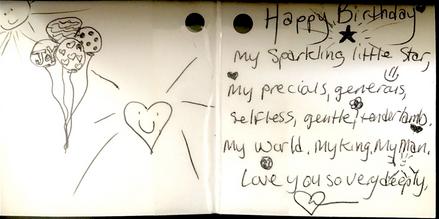 Joy
Happy Birthday
my sparkling little star,
my precials, generais,
selfless, gentle, tender lamb.
my world. My king. My Man.
Love you so very deeply.